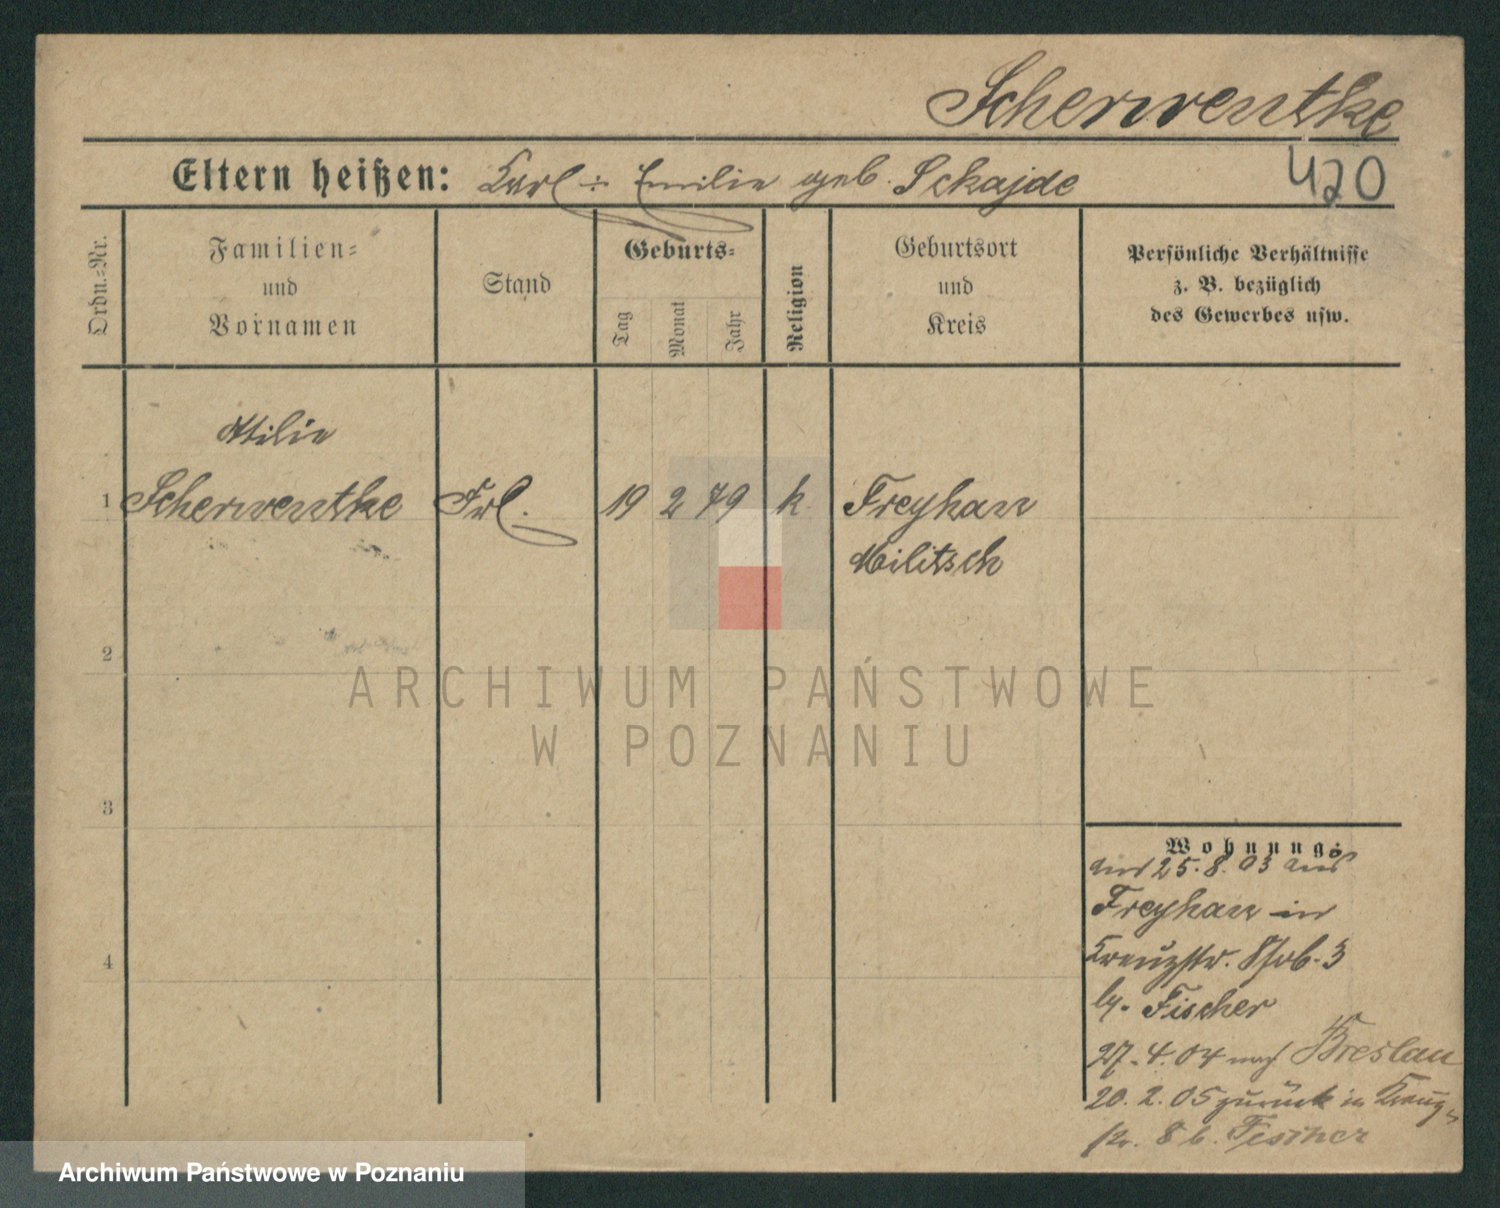 Scherwentke
Eltern heißen: Karl ÷ Emilie geb. Skajde
420
Ordn.=Nr.
Familien=
und
Vornamen
Stand
Geburts=
Tag
Monat
Jahr
Religion
Geburtsort
und
Kreis
Persönliche Verhältnisse
z. B. bezüglich
des Gewerbes usw.
1
Scherwentke
Frl.
19 2 79
k.
Freyhan
Militsch
2
3
4
ARCHIWUM PAŃSTWOWE
W POZNANIU
Wohnung:
25.8.03 aus
Freyhan in
Kreuzstr. 3
Fischer
27.4.04 nach Breslau
20.2.05 zurück in Kreuz=
str. 8 b. Fischer
Archiwum Państwowe w Poznaniu